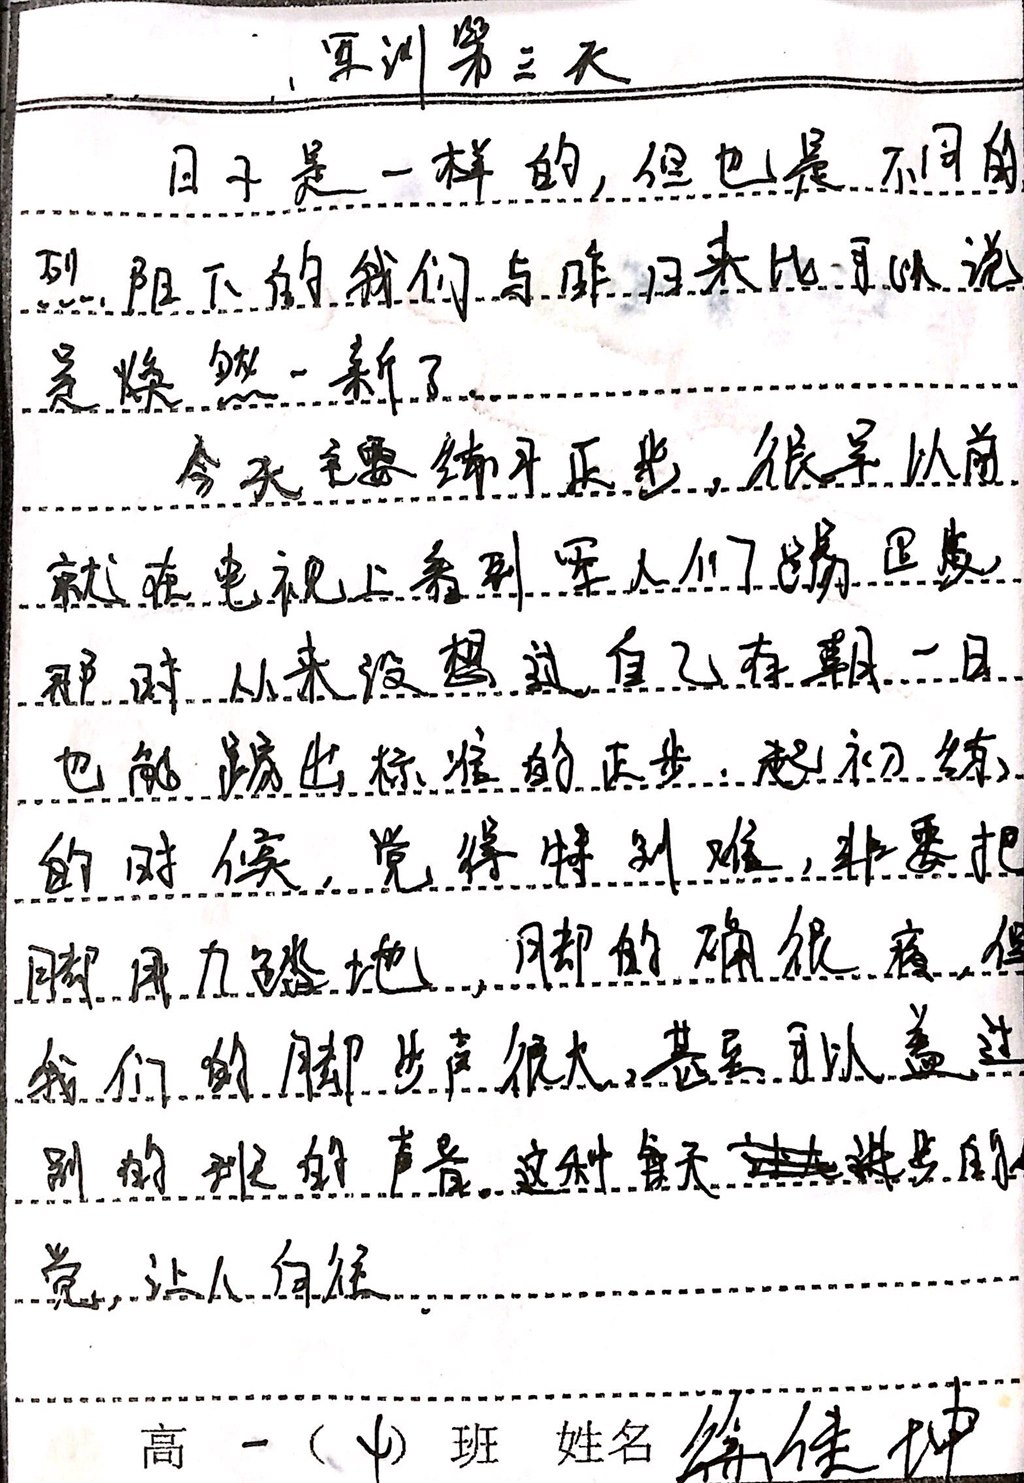 军训第三天
日子是一样的，但也是不同的
烈阳下的我们与昨日来比可以说
是焕然一新了.
今天主要练习正步，很早以前
就在电视上看到军人们踢正步
那时从来没想过自己有朝一日
也能踢出标准的正步.起初练
的时候，觉得特别难，非要把
脚用力踏地，脚的确很疼，但
我们的脚步声很大，甚至可以盖过
别的班的声音.这种每天进步的
觉，让人向往.
高一（）班 姓名 徐佳坤